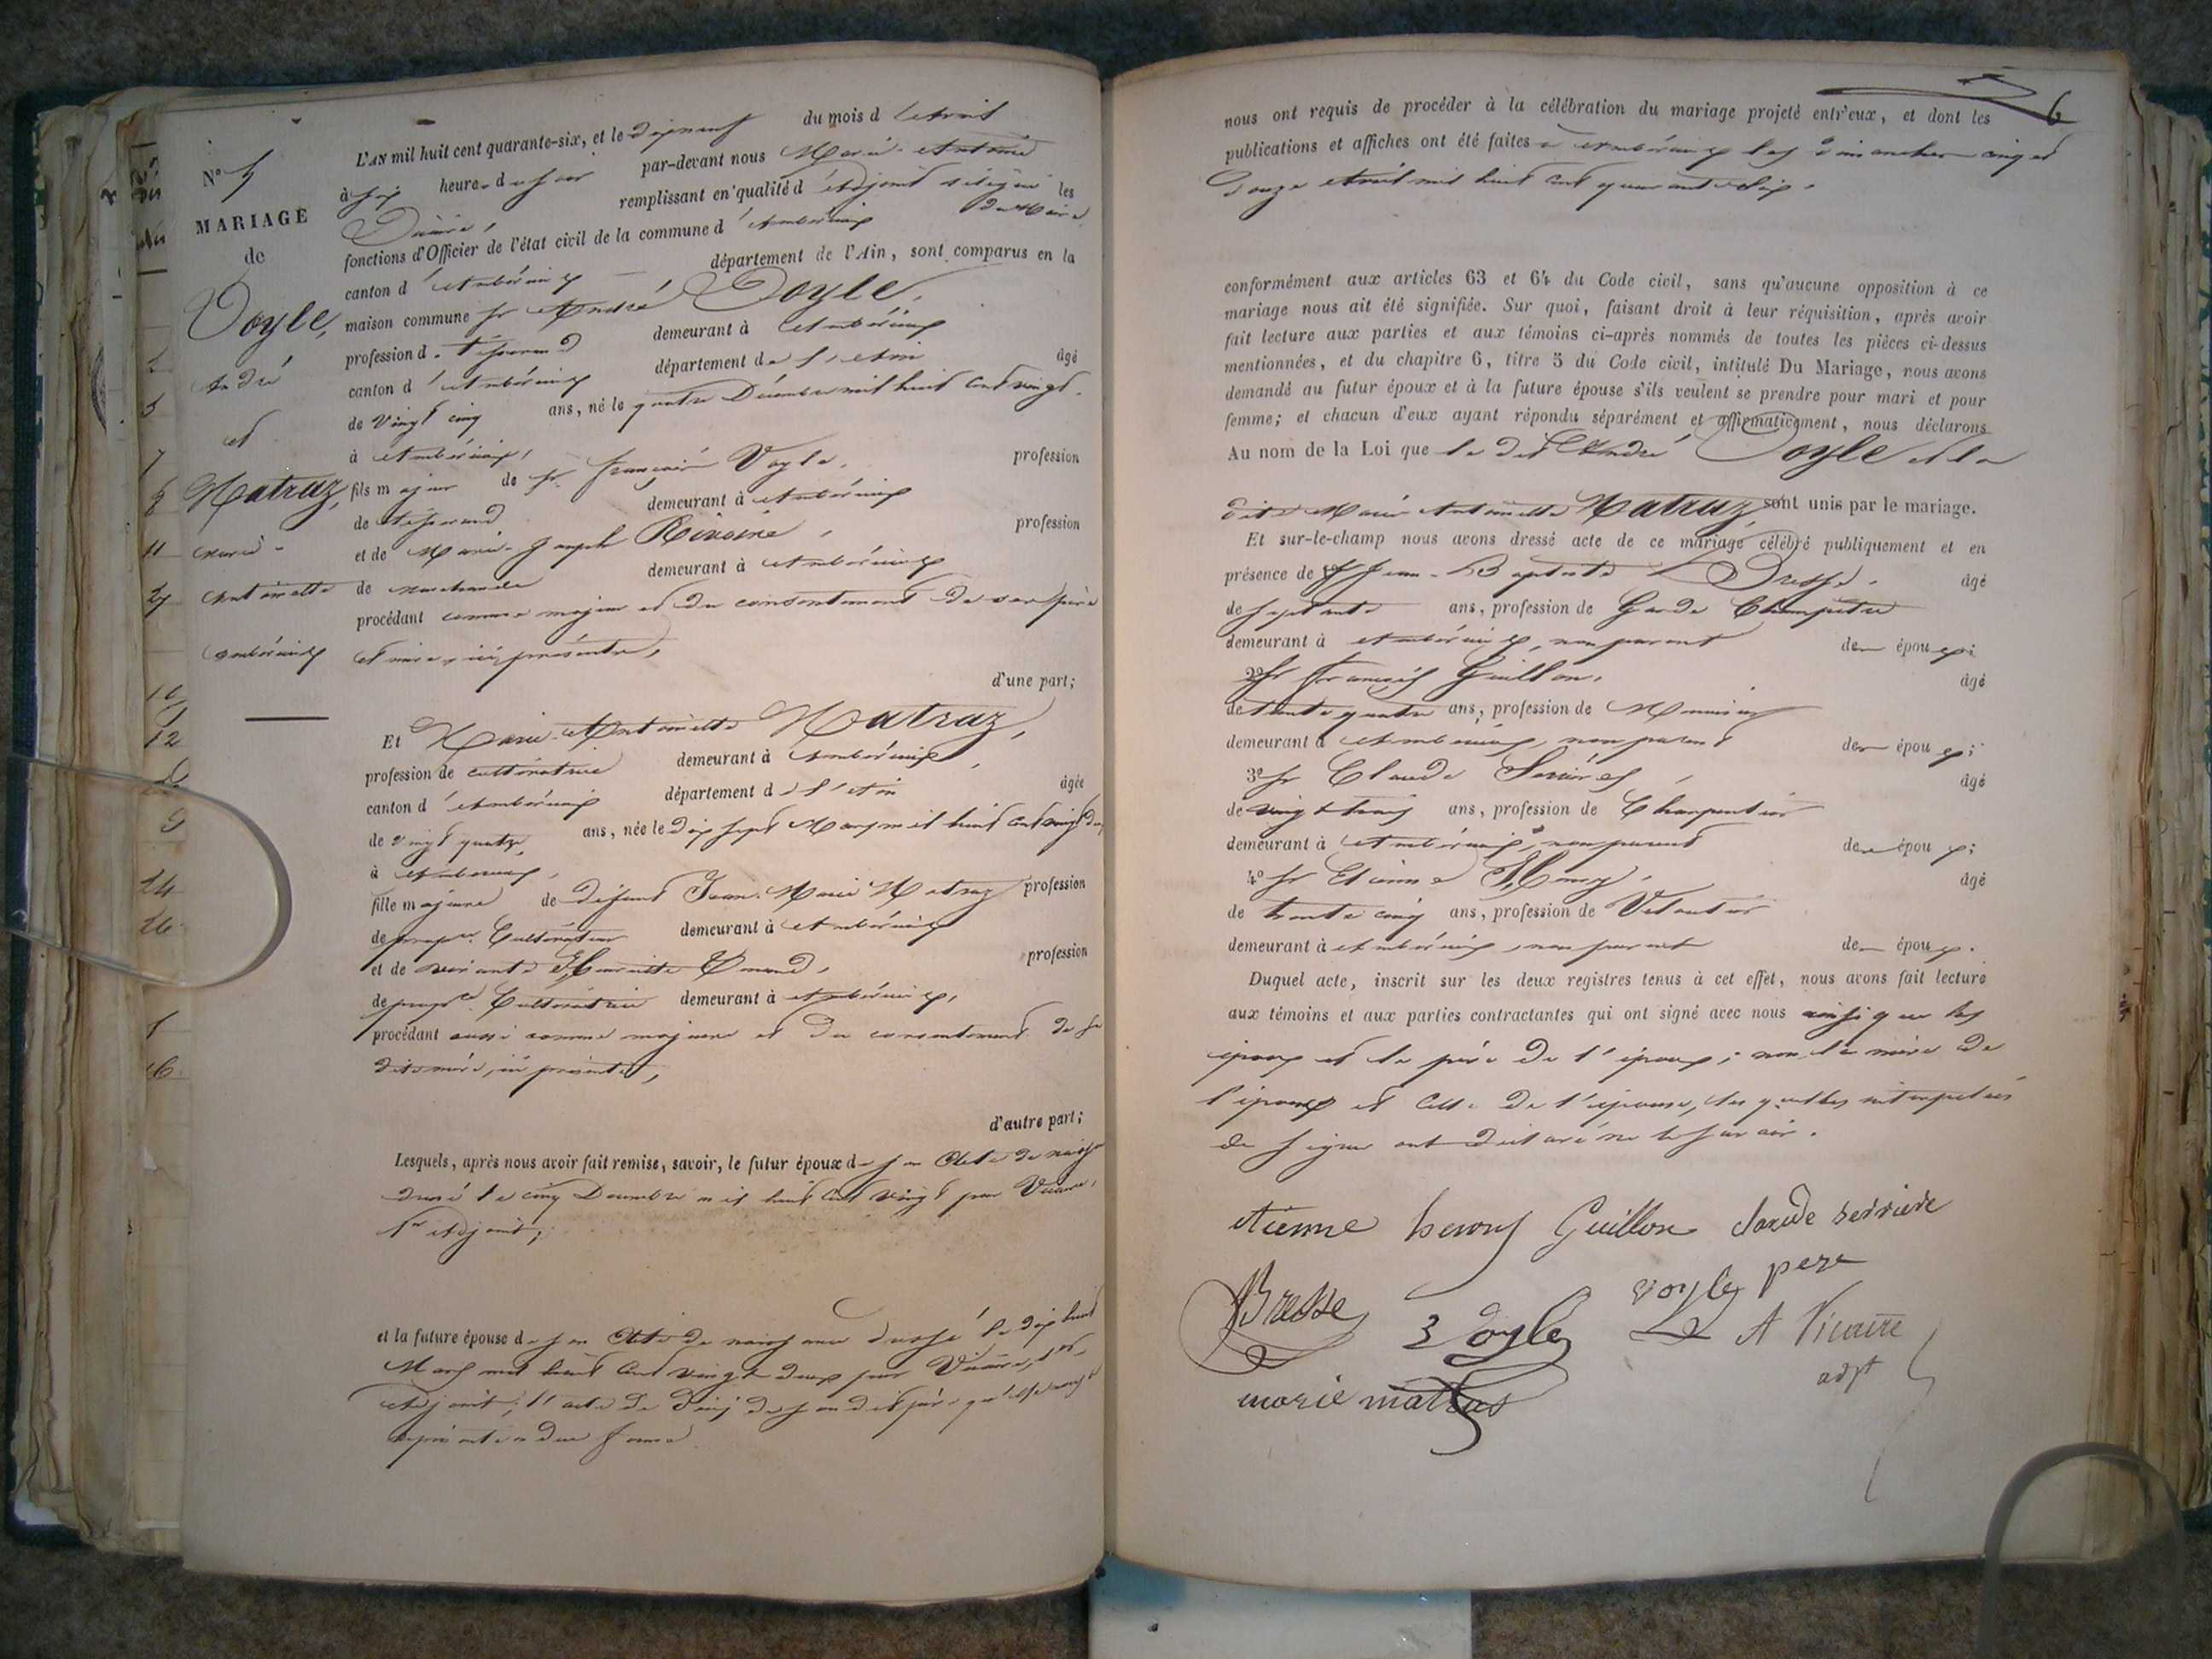 N° 5
MARIAGE
de
Voyle,
André
et
Matraz,
Marie-
Antoinette
Ambérieux
L'AN mil huit cent quarante-six, et le dix neuf du mois d'Avril
à six heures du soir par-devant nous Marie-Antoine
Vicaire, remplissant en qualité d'Adjoint délégué du Maire les
fonctions d'Officier de l'état civil de la commune d'Ambérieux
canton d'Ambérieux département de l'Ain, sont comparus en la
maison commune sr André Voyle,
profession de tisserand demeurant à Ambérieux
canton d'Ambérieux département de l'Ain âgé
de vingt cinq ans, né le quatre Décembre mil huit cent vingt
à Ambérieux,
fils majeur de sr françois Voyle, profession
de tisserand demeurant à Ambérieux
et de Marie-Joseph Rivoire, profession
de marchande demeurant à Ambérieux
procédant comme majeur et du consentement de ses père
et mère, ici présents,
d'une part;
Et Marie-Antoinette Matraz,
profession de cultivatrice demeurant à Ambérieux,
canton d'Ambérieux département de l'Ain âgée
de vingt quatre ans, née le dix sept Mars mil huit cent vingt deux
à Ambérieux,
fille majeure de défunt Jean-Marie Matraz profession
de propre. Cultivateur demeurant à Ambérieux
et de vivante Henriette profession
de propre. Cultivatrice demeurant à Ambérieux,
procédant aussi comme majeure et du consentement de sa
dite mère, ici présente,
d'autre part;
Lesquels, après nous avoir fait remise, savoir, le futur époux de son Acte de naissce
dressé le cinq Décembre mil huit cent vingt par Vicaire,
1er Adjoint;
et la future épouse de son Acte de naissance dressé le dix huit
Mars mil huit cent vingt deux par Vicaire, 1er
Adjoint; l'acte de décès de son dit père
en due forme
6
nous ont requis de procéder à la célébration du mariage projeté entr'eux, et dont les
publications et affiches ont été faites à Ambérieux les dimanches cinq et
douze Avril mil huit cent quarante six.
conformément aux articles 63 et 64 du Code civil, sans qu'aucune opposition à ce
mariage nous ait été signifiée. Sur quoi, faisant droit à leur réquisition, après avoir
fait lecture aux parties et aux témoins ci-après nommés de toutes les pièces ci-dessus
mentionnées, et du chapitre 6, titre 5 du Code civil, intitulé Du Mariage, nous avons
demandé au futur époux et à la future épouse s'ils veulent se prendre pour mari et pour
femme; et chacun d'eux ayant répondu séparément et affirmativement, nous déclarons
Au nom de la Loi que le dit André Voyle et la
dite Marie Antoinette Matraz, sont unis par le mariage.
Et sur-le-champ nous avons dressé acte de ce mariage célébré publiquement et en
présence de sr Jean-Baptiste Bresse, âgé
de septante ans, profession de Garde Champêtre
demeurant à Ambérieux, non parent des époux;
2° sr françois Guillon, âgé
de trente quatre ans, profession de Menuisier
demeurant à Ambérieux, non parent des époux;
3° sr Claude Serrière, âgé
de vingt trois ans, profession de Charpentier
demeurant à Ambérieux, non parent des époux;
4° sr Etienne Henry, âgé
de trente cinq ans, profession de
demeurant à Ambérieux, non parent des époux.
Duquel acte, inscrit sur les deux registres tenus à cet effet, nous avons fait lecture
aux témoins et aux parties contractantes qui ont signé avec nous ainsi que les
époux et le père de l'époux; non la mère de
l'époux et celle de l'épouse, lesquelles interpelées
de signer ont déclaré ne le savoir.
etienne henry Guillon claude serriere
Bresse Voyle voyle pere A Vicaire
adjt
marie matras